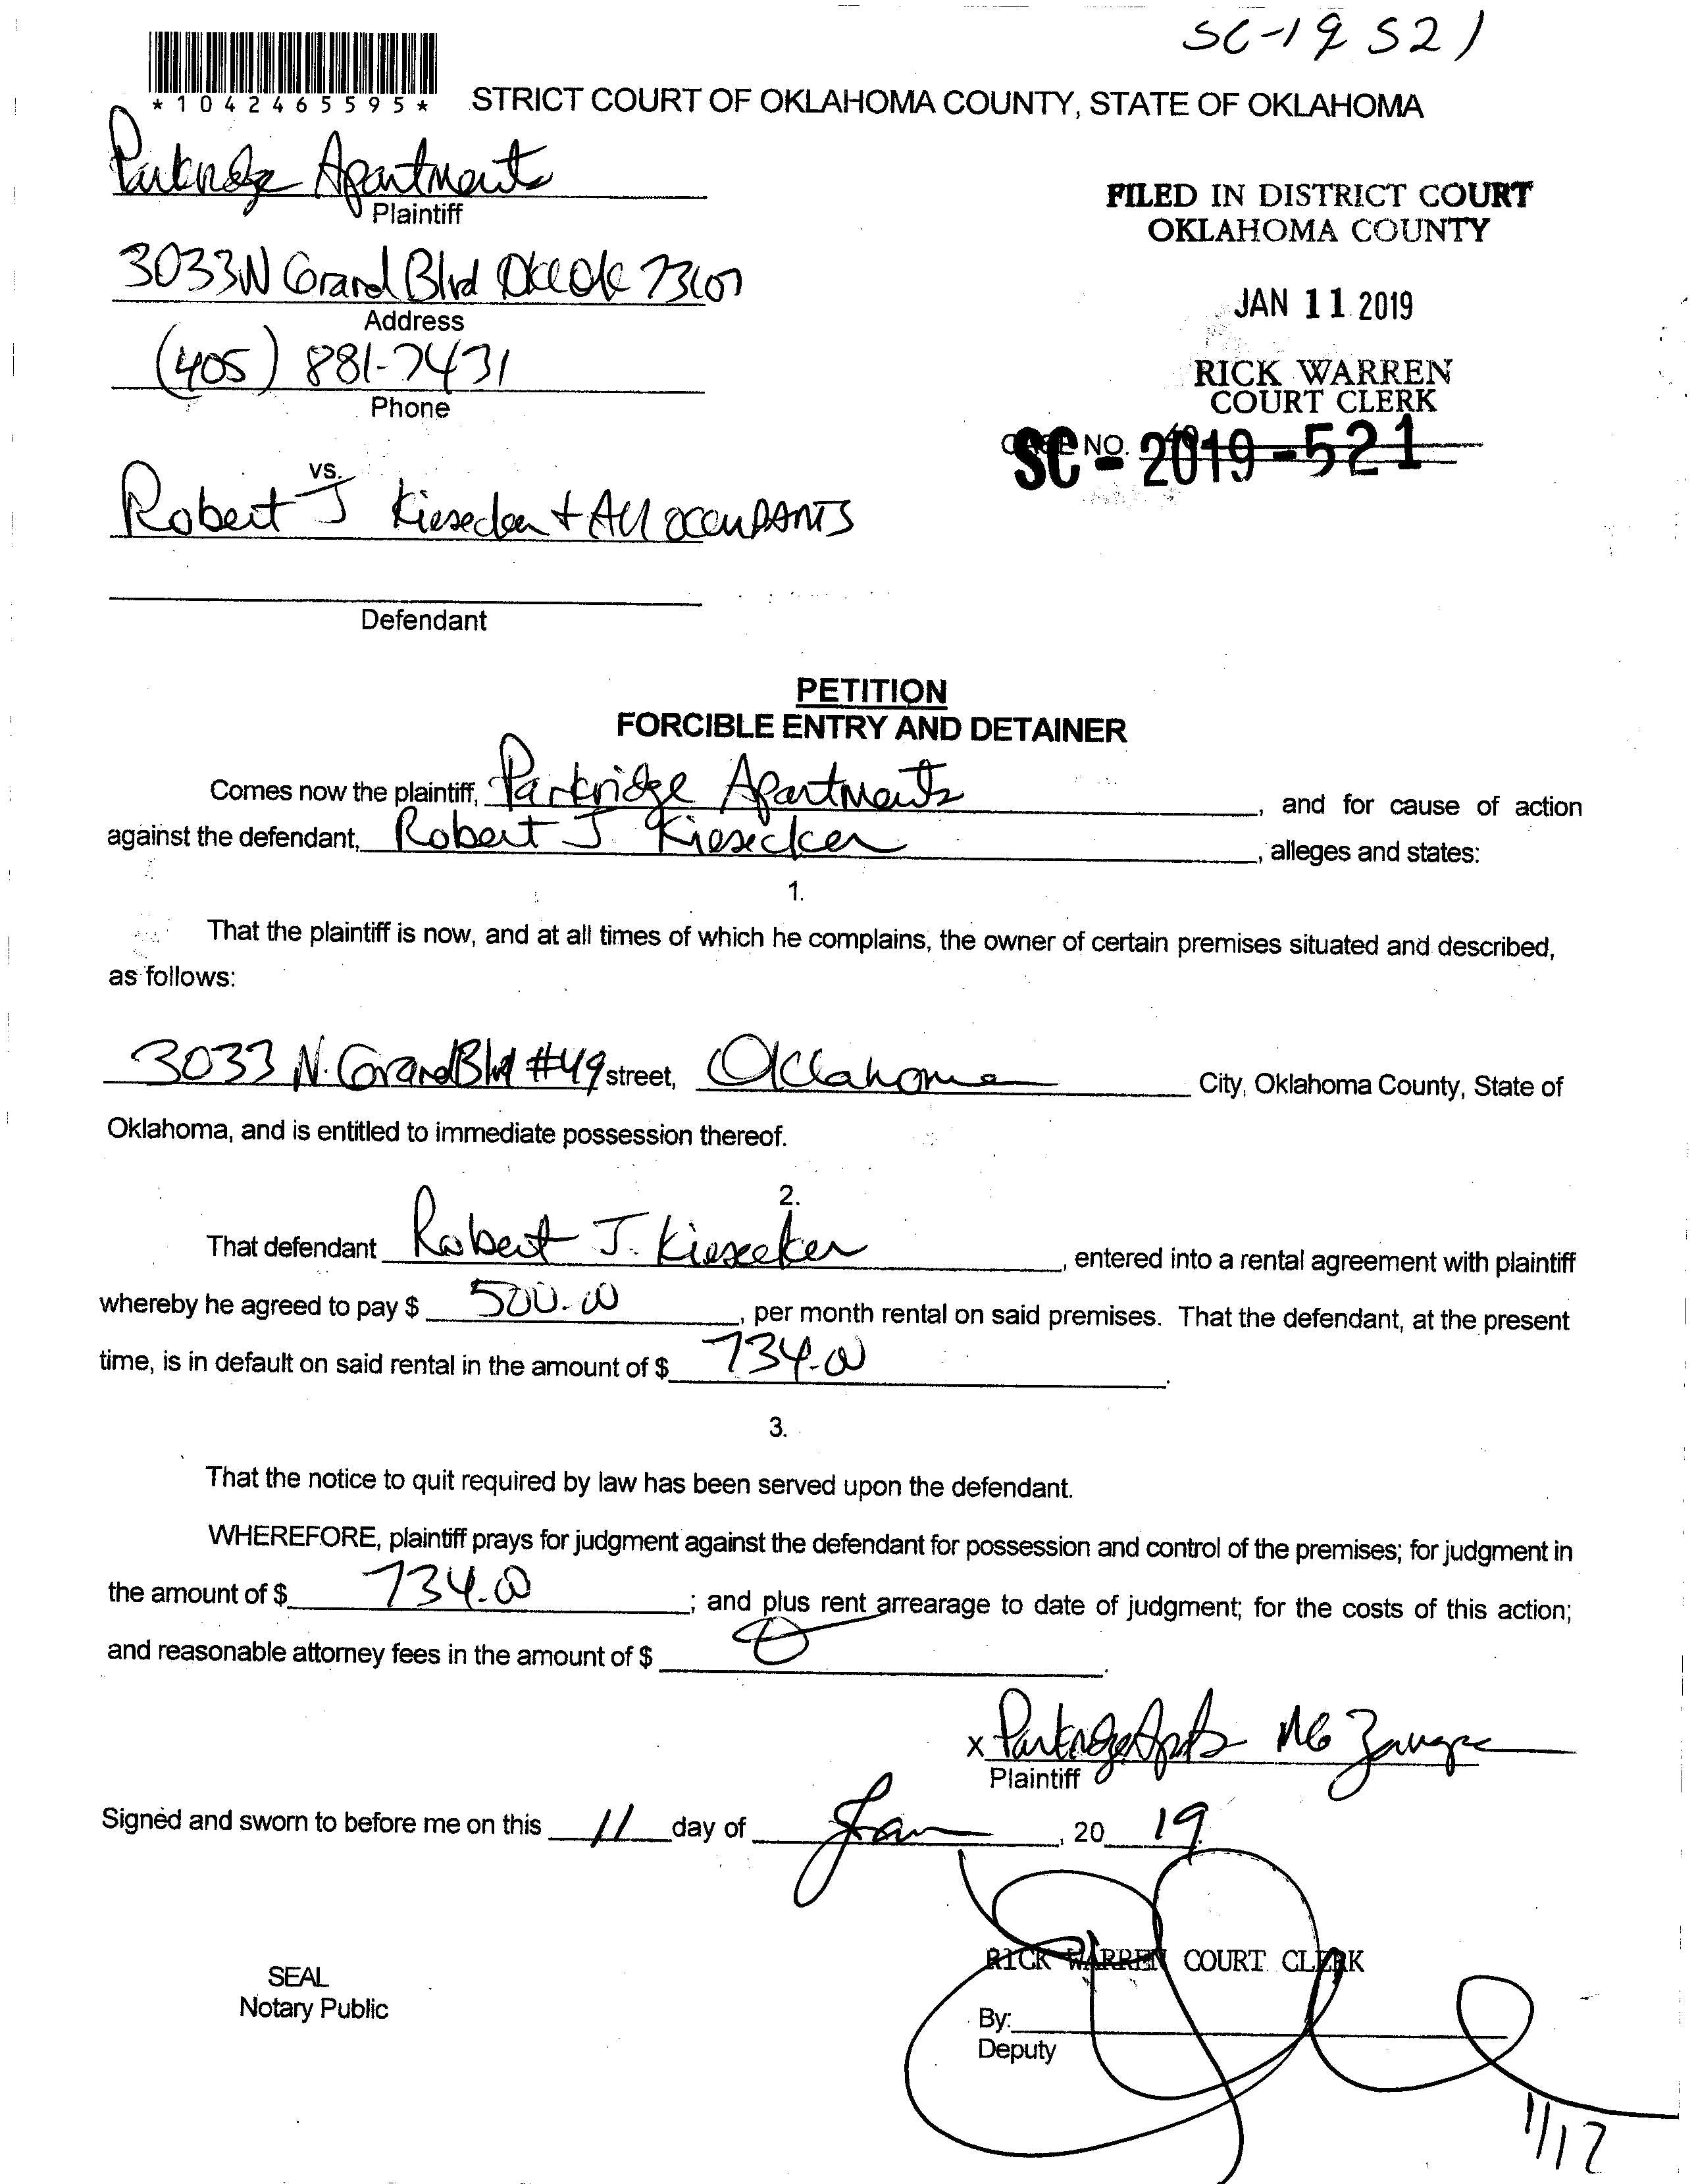 SC-19 521
*1042465595*
STRICT COURT OF OKLAHOMA COUNTY, STATE OF OKLAHOMA
Parkridge Apartments
Plaintiff
FILED IN DISTRICT COURT
OKLAHOMA COUNTY
3033 N Grand Blvd OKC OK 73107
Address
JAN 11 2019
(405) 881-7431
Phone
RICK WARREN
COURT CLERK
NO.
SC - 2019 - 521
vs.
Robert J Kiesecker + All occuPANTS
Defendant
PETITION
FORCIBLE ENTRY AND DETAINER
Comes now the plaintiff, Parkridge Apartments, and for cause of action
against the defendant, Robert J. Kiesecker, alleges and states:
1.
That the plaintiff is now, and at all times of which he complains, the owner of certain premises situated and described,
as follows:
3033 N. Grand Blvd #49 street, Oklahoma City, Oklahoma County, State of
Oklahoma, and is entitled to immediate possession thereof.
2.
That defendant Robert J. Kiesecker, entered into a rental agreement with plaintiff
whereby he agreed to pay $ 500.00, per month rental on said premises. That the defendant, at the present
time, is in default on said rental in the amount of $ 734.00.
3.
That the notice to quit required by law has been served upon the defendant.
WHEREFORE, plaintiff prays for judgment against the defendant for possession and control of the premises; for judgment in
the amount of $ 734.00; and plus rent arrearage to date of judgment; for the costs of this action;
and reasonable attorney fees in the amount of $ 0.
x Parkridge Apts
Plaintiff
Signed and sworn to before me on this 11 day of Jan, 20 19.
RICK WARREN COURT CLERK
SEAL
Notary Public
By:
Deputy
1/17